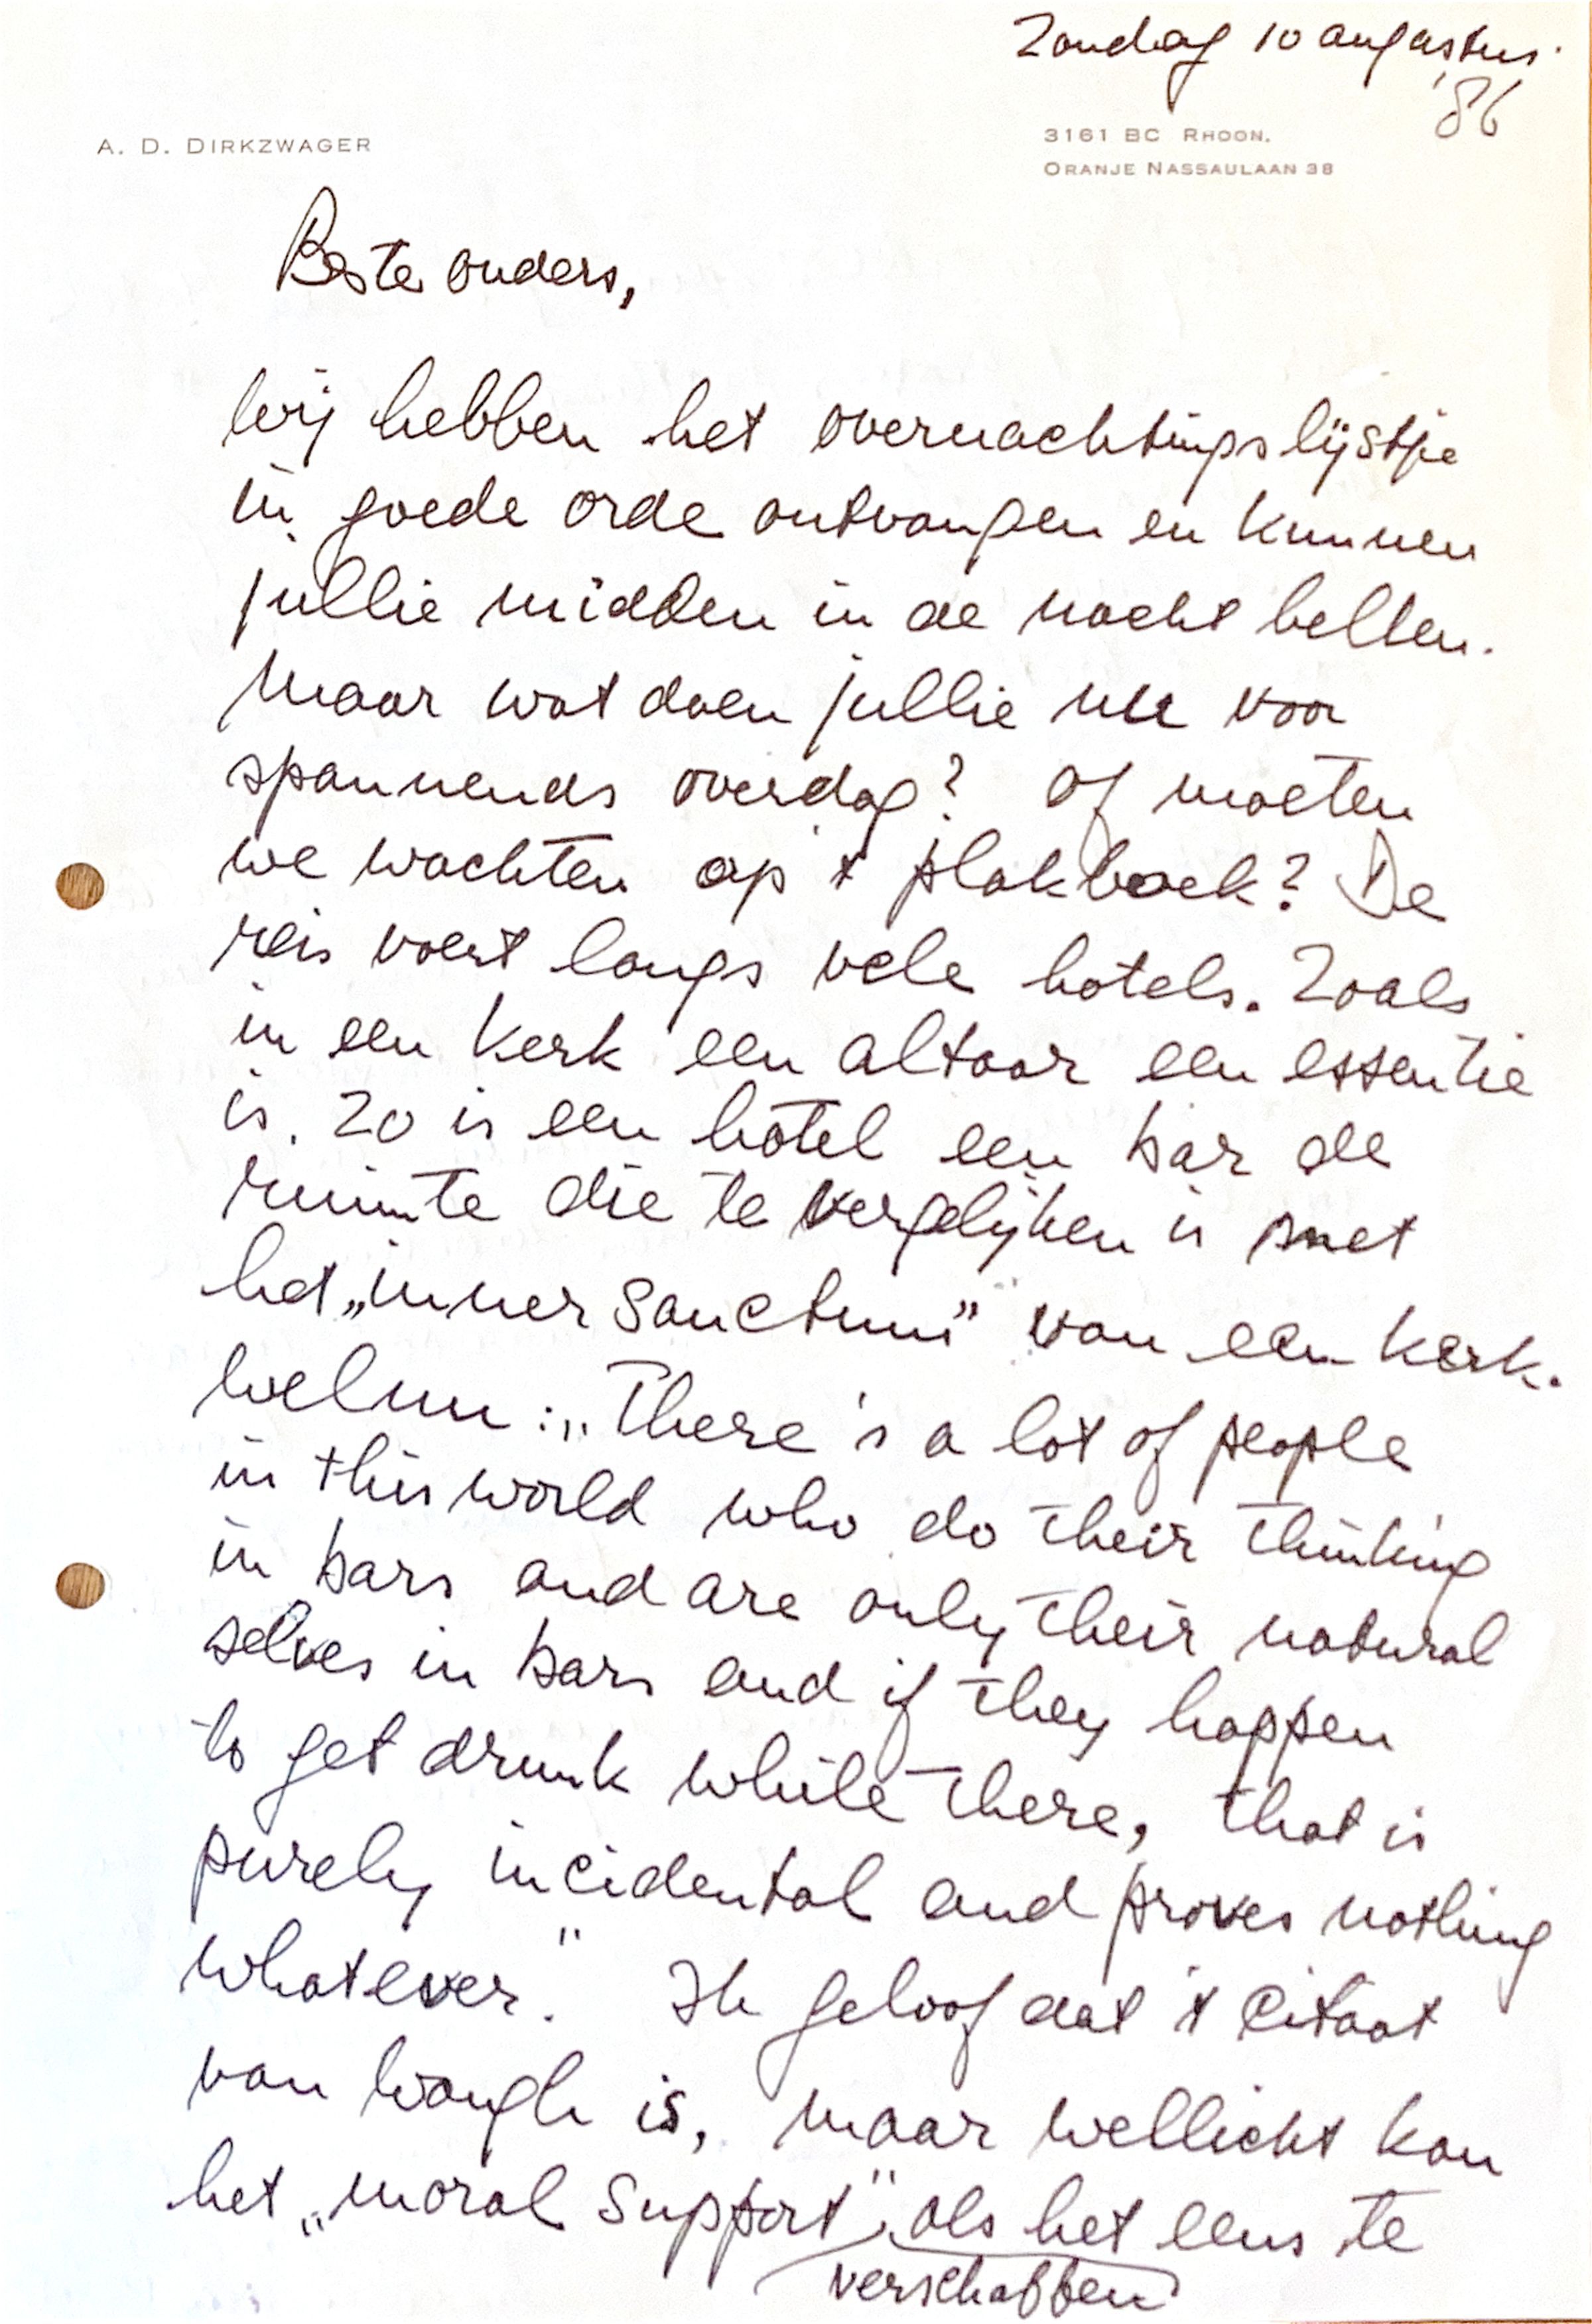 Zondag 10 augustus.
'86
A. D. DIRKZWAGER
3161 BC RHOON.
ORANJE NASSAULAAN 38
Beste ouders,
Wij hebben het overnachtingslijstje
in goede orde ontvangen en kunnen
jullie midden in de nacht bellen.
Maar wat doen jullie nu voor
spannends overdag? Of moeten
we wachten op 't plakboek? De
reis voert langs vele hotels. Zoals
in een kerk een altaar een essentie
is. Zo is een hotel een bar de
ruimte die te vergelijken is met
het „inner sanctum” van een kerk.
Welnu: „There's a lot of people
in this world who do their thinking
in bars and are only their natural
selves in bars and if they happen
to get drunk while there, that is
purely incidental and proves nothing
whatever." Ik geloof dat 't citaat
van Waugh is, maar wellicht kan
het „moral support", als het eens te
verschaffen